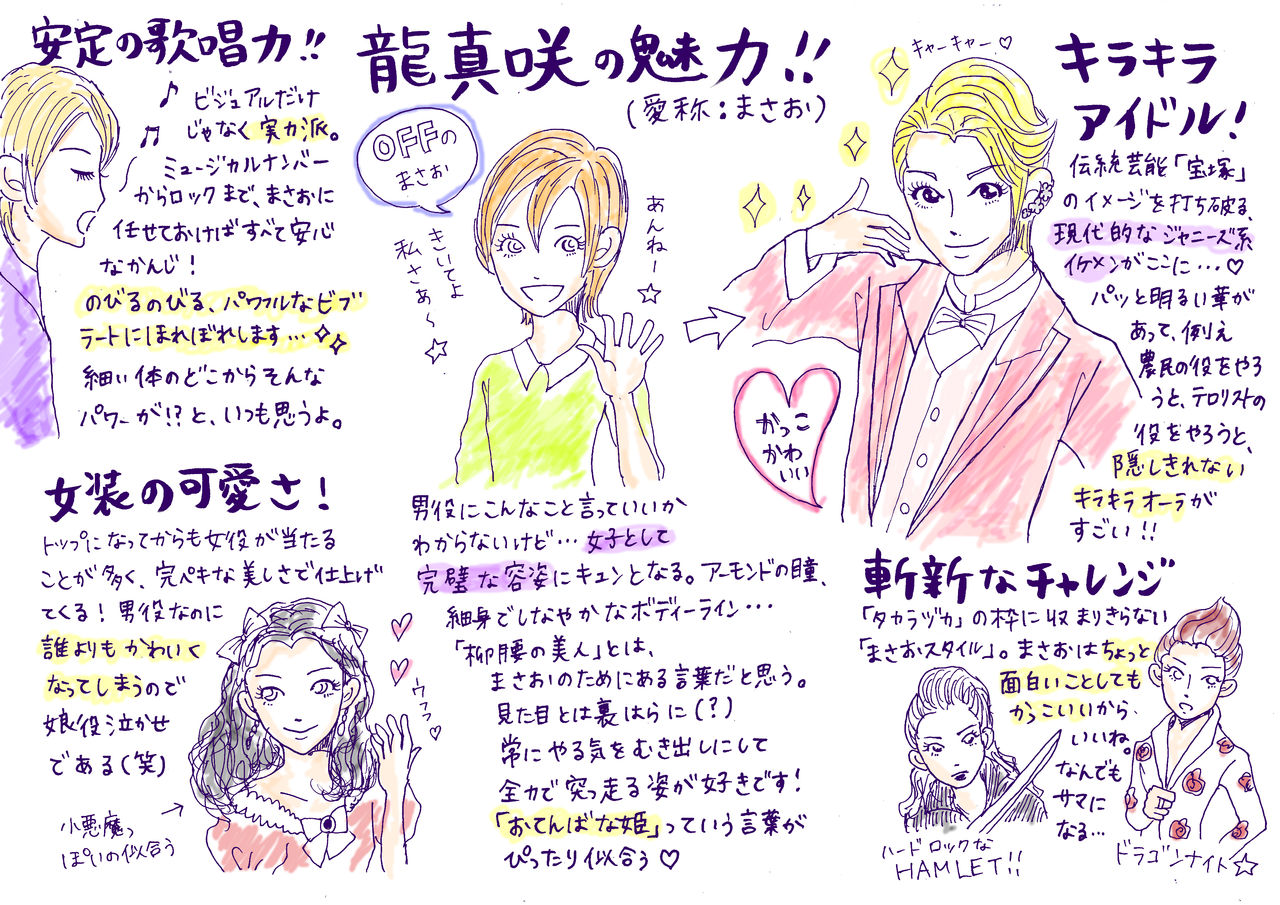 龍真咲の魅力!!
(愛称:まさお)
安定の歌唱力!!
ビジュアルだけ
じゃなく実力派。
ミュージカルナンバー
からロックまで、まさおに
任せておけばすべて安心
なかんじ!
のびるのびる、パワフルなビブ
ラートにほれぼれします…
細い体のどこからそんな
パワーが!?と、いつも思うよ。
OFFの
まさお
あんねー☆
きいてよ
私さぁ〜☆
キャーキャー♡
かっこ
かわ
いい
キラキラ
アイドル!
伝統芸能「宝塚」
のイメージを打ち破る、
現代的なジャニーズ系
イケメンがここに…♡
パッと明るい華が
あって、例え
農民の役をやろ
うと、テロリストの
役をやろうと、
隠しきれない
キラキラオーラが
すごい!!
女装の可愛さ!
トップになってからも女役が当たる
ことが多く、完ペキな美しさで仕上げ
てくる!男役なのに
誰よりもかわいく
なってしまうので
娘役泣かせ
である(笑)
小悪魔っ
ぽいの似合う
ウフフ♡
男役にこんなこと言っていいか
わからないけど…女子として
完璧な容姿にキュンとなる。アーモンドの瞳、
細身でしなやかなボディーライン…
「柳腰の美人」とは、
まさおのためにある言葉だと思う。
見た目とは裏はらに(?)
常にやる気をむき出しにして
全力で突っ走る姿が好きです!
「おてんばな姫」っていう言葉が
ぴったり似合う♡
斬新なチャレンジ
「タカラヅカ」の枠に収まりきらない
「まさおスタイル」。まさおはちょっと
面白いことしても
かっこいいから、
いいね。
なんでも
サマに
なる…
ハードロックな
HAMLET!!
ドラゴンナイト☆